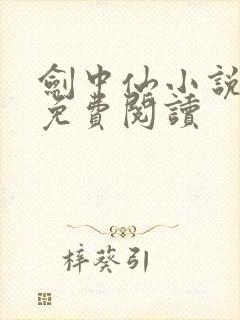 劍中仙小說
免費閱讀
梓葵引